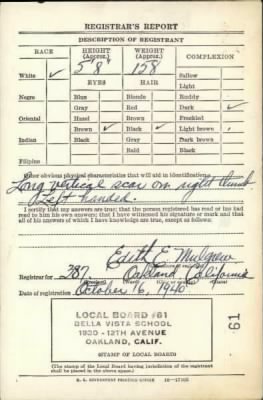 REGISTRAR'S REPORT
DESCRIPTION OF REGISTRANT
RACE HEIGHT (Approx.) WEIGHT (Approx.) COMPLEXION
White ✓ 5'8 158 Sallow
EYES HAIR Light
Negro Blue Blonde Ruddy
Gray Red Dark ✓
Oriental Hazel Brown Freckled
Brown ✓ Black ✓ Light brown
Indian Black Gray Dark brown
Bald Black
Filipino
Other obvious physical characteristics that will aid in identification
Long vertical scar on right thumb
Left handed.
I certify that my answers are true; that the person registered has read or has had
read to him his own answers; that I have witnessed his signature or mark and that
all of his answers of which I have knowledge are true, except as follows:
Edith E. Mulgrew
Registrar for 287 Oakland California
Date of registration October 16, 1940
LOCAL BOARD #61
BELLA VISTA SCHOOL
1930 - 12TH AVENUE
OAKLAND, CALIF.
STAMP OF LOCAL BOARD
61
(The stamp of the Local Board having jurisdiction of the registrant
shall be placed in the above space.)
U. S. GOVERNMENT PRINTING OFFICE